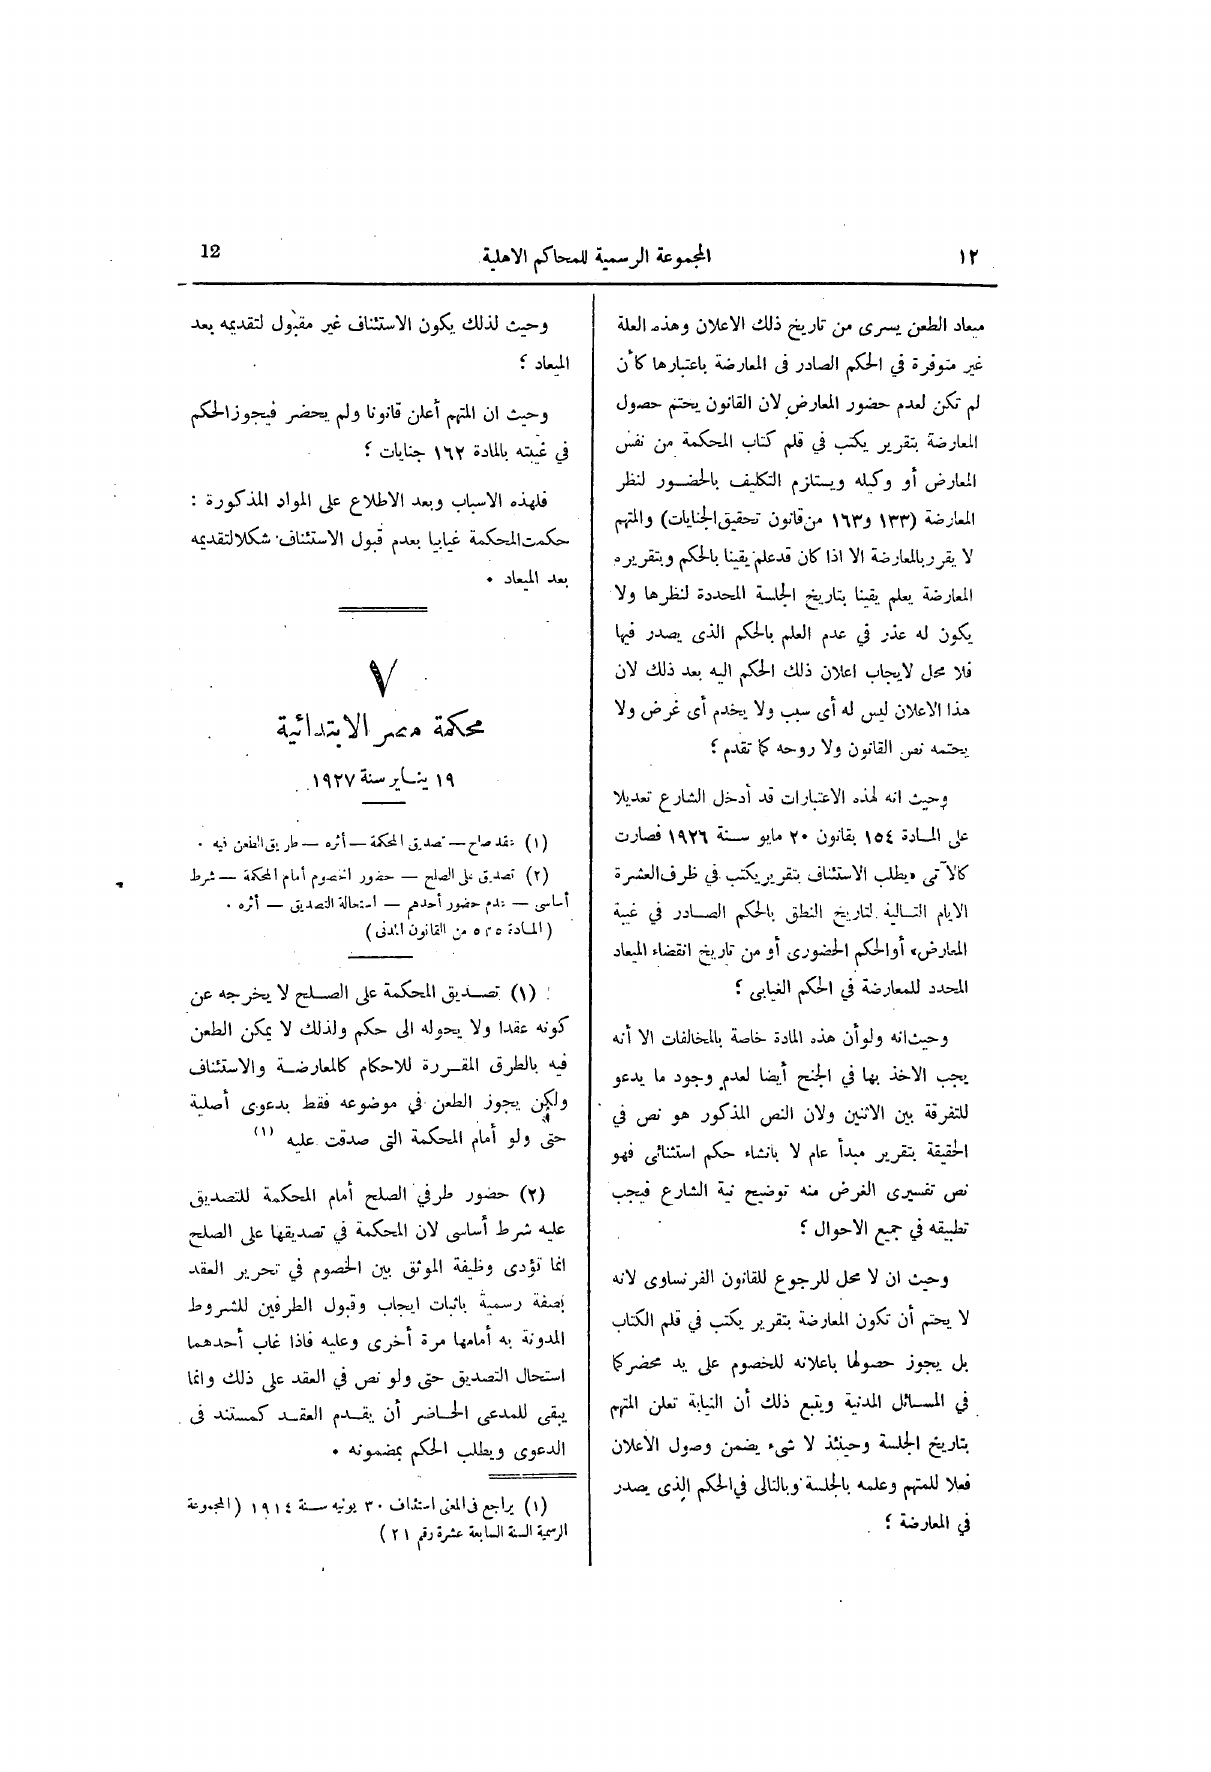 ١٢
المجموعة الرسمية للمحاكم الاهلية
12
ميعاد الطعن يسرى من تاريخ ذلك الاعلان وهذه العلة
غير متوفرة في الحكم الصادر فى المعارضة باعتبارها كأن
لم تكن لعدم حضور المعارض لان القانون يحتم حصول
المعارضة بتقرير يكتب في قلم كتاب المحكمة من نفس
المعارض أو وكيله ويستلزم التكليف بالحضور لنظر
المعارضة (١٣٣ و١٦٣ من قانون تحقيق الجنايات) والمتهم
لا يقرر بالمعارضة الا اذا كان قد علم يقينا بالحكم وبتقريره
المعارضة يعلم يقينا بتاريخ الجلسة المحددة لنظرها ولا
يكون له عذر في عدم العلم بالحكم الذى يصدر فيها
فلا محل لايجاب اعلان ذلك الحكم اليه بعد ذلك لان
هذا الاعلان ليس له أى سبب ولا يخدم أى غرض ولا
يحتمه نص القانون ولا روحه كما تقدم ؛
وحيث انه لهذه الاعتبارات قد أدخل الشارع تعديلا
على المادة ١٥٤ بقانون ٢٠ مايو سنة ١٩٢٦ فصارت
كالآتى «يطلب الاستئناف بتقرير يكتب في ظرف العشرة
الايام التالية لتاريخ النطق بالحكم الصادر في غيبة
المعارض» أو الحكم الحضورى أو من تاريخ انقضاء الميعاد
المحدد للمعارضة في الحكم الغيابى ؛
وحيث انه ولو أن هذه المادة خاصة بالمخالفات الا أنه
يجب الاخذ بها في الجنح أيضا لعدم وجود ما يدعو
للتفرقة بين الاثنين ولان النص المذكور هو نص في
الحقيقة بتقرير مبدأ عام لا بانشاء حكم استثنائى فهو
نص تفسيرى الغرض منه توضيح نية الشارع فيجب
تطبيقه في جميع الاحوال ؛
وحيث ان لا محل للرجوع للقانون الفرنساوى لانه
لا يحتم أن تكون المعارضة بتقرير يكتب في قلم الكتاب
بل يجوز حصولها باعلانه للخصوم على يد محضر كما
في المسائل المدنية ويتبع ذلك أن النيابة تعلن المتهم
بتاريخ الجلسة وحينئذ لا شىء يضمن وصول الاعلان
فعلا للمتهم وعلمه بالجلسة وبالتالى في الحكم الذى يصدر
في المعارضة ؛
وحيث لذلك يكون الاستئناف غير مقبول لتقديمه بعد
الميعاد ؛
وحيث ان المتهم أعلن قانونا ولم يحضر فيجوز الحكم
في غيبته بالمادة ١٦٢ جنايات ؛
فلهذه الاسباب وبعد الاطلاع على المواد المذكورة :
حكمت المحكمة غيابيا بعدم قبول الاستئناف شكلا لتقديمه
بعد الميعاد .
٧
محكمة مصر الابتدائية
١٩ يناير سنة ١٩٢٧
(١) عقد صلح — تصديق المحكمة — أثره — طريق الطعن فيه .
(٢) تصديق على الصلح — حضور الخصوم أمام المحكمة — شرط
أساسى — عدم حضور أحدهم — استحالة التصديق — أثره .
(المادة ٥٣٥ من القانون المدنى)
(١) تصديق المحكمة على الصلح لا يخرجه عن
كونه عقدا ولا يحوله الى حكم ولذلك لا يمكن الطعن
فيه بالطرق المقررة للاحكام كالمعارضة والاستئناف
ولكن يجوز الطعن في موضوعه فقط بدعوى أصلية
حتى ولو أمام المحكمة التى صدقت عليه (١)
(٢) حضور طرفي الصلح أمام المحكمة للتصديق
عليه شرط أساسى لان المحكمة في تصديقها على الصلح
انما تؤدى وظيفة الموثق بين الخصوم في تحرير العقد
بصفة رسمية باثبات ايجاب وقبول الطرفين للشروط
المدونة به أمامها مرة أخرى وعليه فاذا غاب أحدهما
استحال التصديق حتى ولو نص في العقد على ذلك وانما
يبقى للمدعى الحاضر أن يقدم العقد كمستند فى
الدعوى ويطلب الحكم بمضمونه .
(١) يراجع في المعنى استئناف ٣٠ يونيه سنة ١٩١٤ (المجموعة
الرسمية السنة السابعة عشرة رقم ٢١)